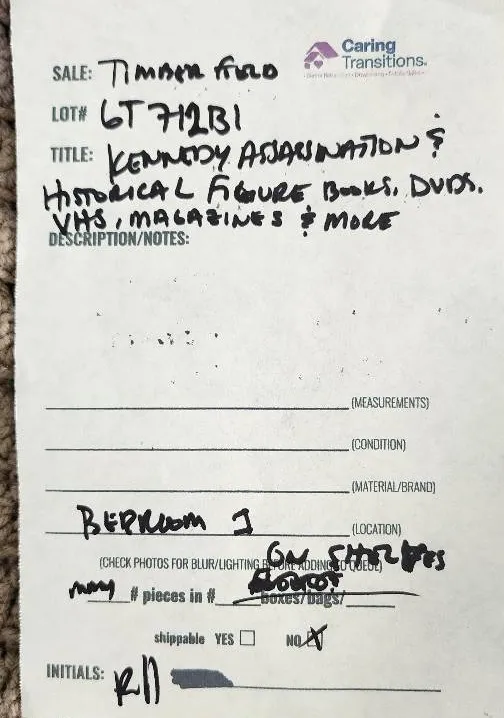 Caring
Transitions.
SALE: TIMBER FIELD
LOT# 6T712B1
TITLE: KENNEDY ASSASSINATION &
HISTORICAL FIGURE BOOKS, DVDS,
VHS, MAGAZINES & MORE
DESCRIPTION/NOTES:
(MEASUREMENTS)
(CONDITION)
(MATERIAL/BRAND)
BEDROOM 1 (LOCATION)
(CHECK PHOTOS FOR BLUR/LIGHTING BEFORE ADDING TO QUEUE)
ON SHELVES
many # pieces in # boxes/bags/
shippable YES NO X
INITIALS: